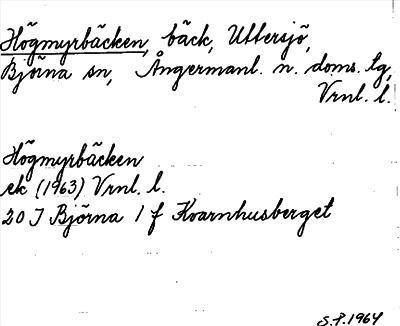 Högmyrbäcken, bäck, Uttersjö,
Björna sn, Ångermanl. n. doms. lg,
Vrnl. l.
Högmyrbäcken
ek (1963) Vrnl. l.
20 J Björna 1 f Kvarnhusberget
S.P. 1964